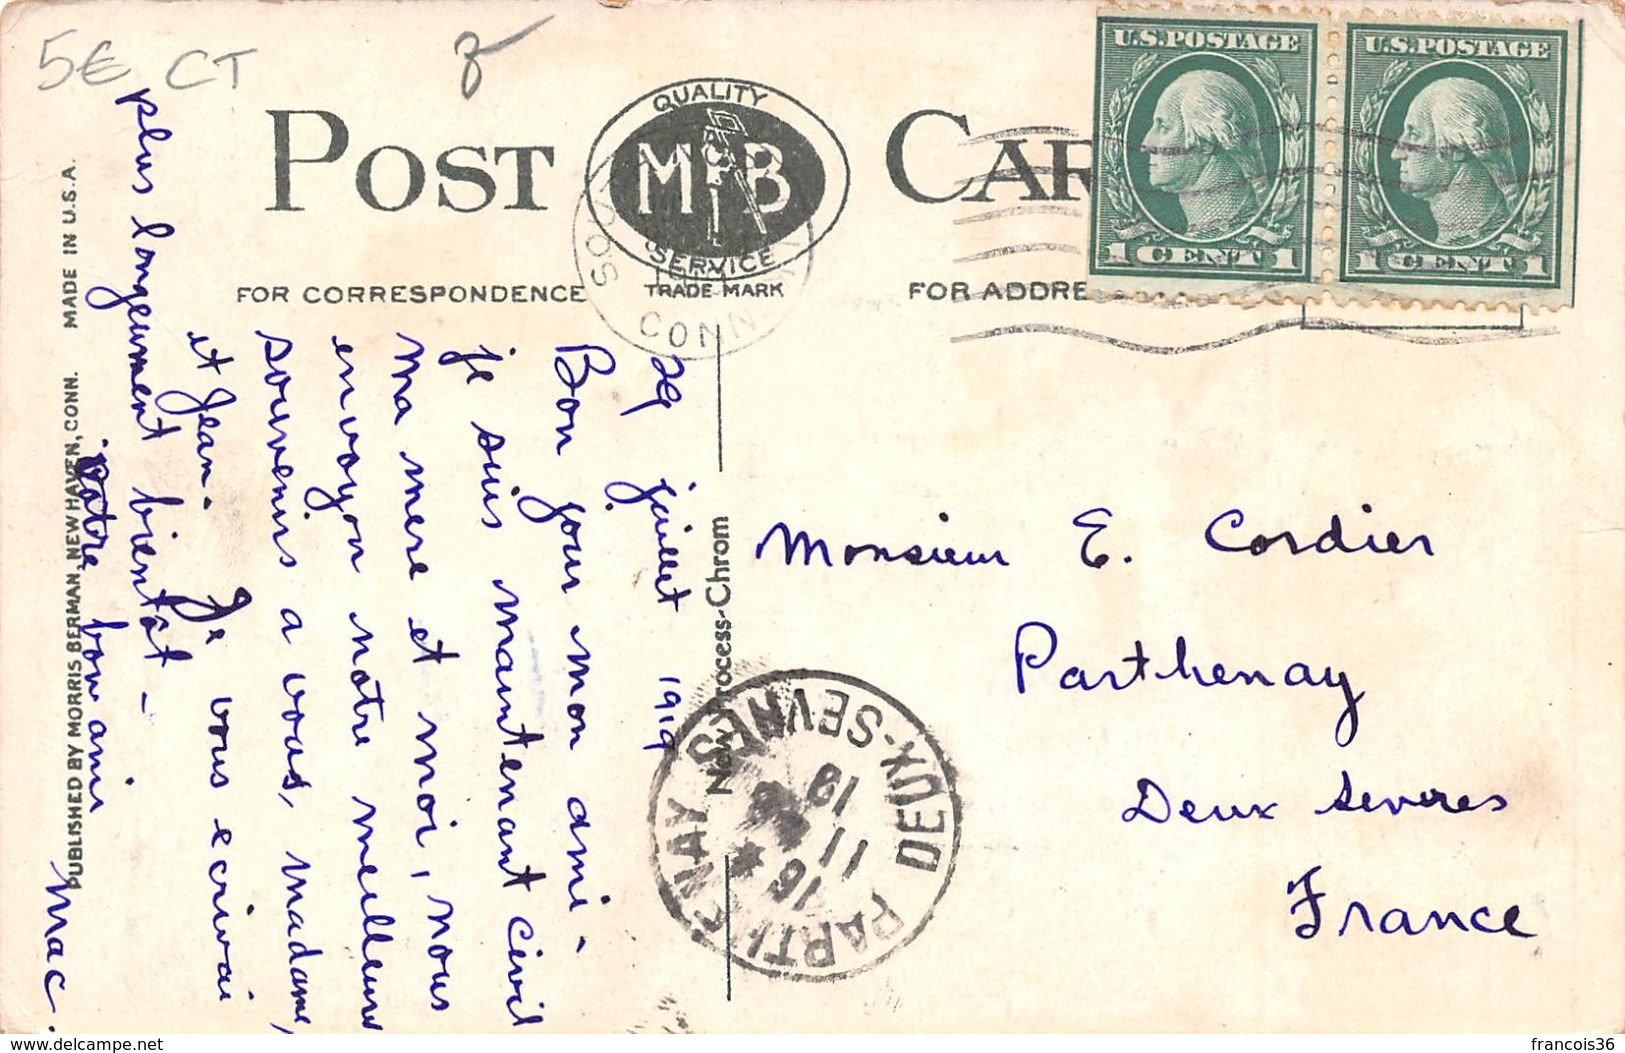 5€ CT
POST CAR
QUALITY
M B
SERVICE
TRADE MARK
FOR CORRESPONDENCE
FOR ADDRE
U.S.POSTAGE
1 CENT 1
U.S.POSTAGE
1 CENT 1
CONN
29 juillet 1919
Bon jour mon ami -
je suis maintenant civil
Ma mere et moi, nous
envoyon notre meilleur
souvenirs a vous, madame,
et Jean. Je vous ecrivai
plus longeument bientôt -
votre bon ami
Mac.
PUBLISHED BY MORRIS BERMAN, NEW HAVEN, CONN. MADE IN U.S.A.
New Process-Chrom
Monsieur E. Cordier
Parthenay
Deux Sevres
France
PARTHENAY
DEUX-SEVRES
18
11
16
www.delcampe.net
francois36